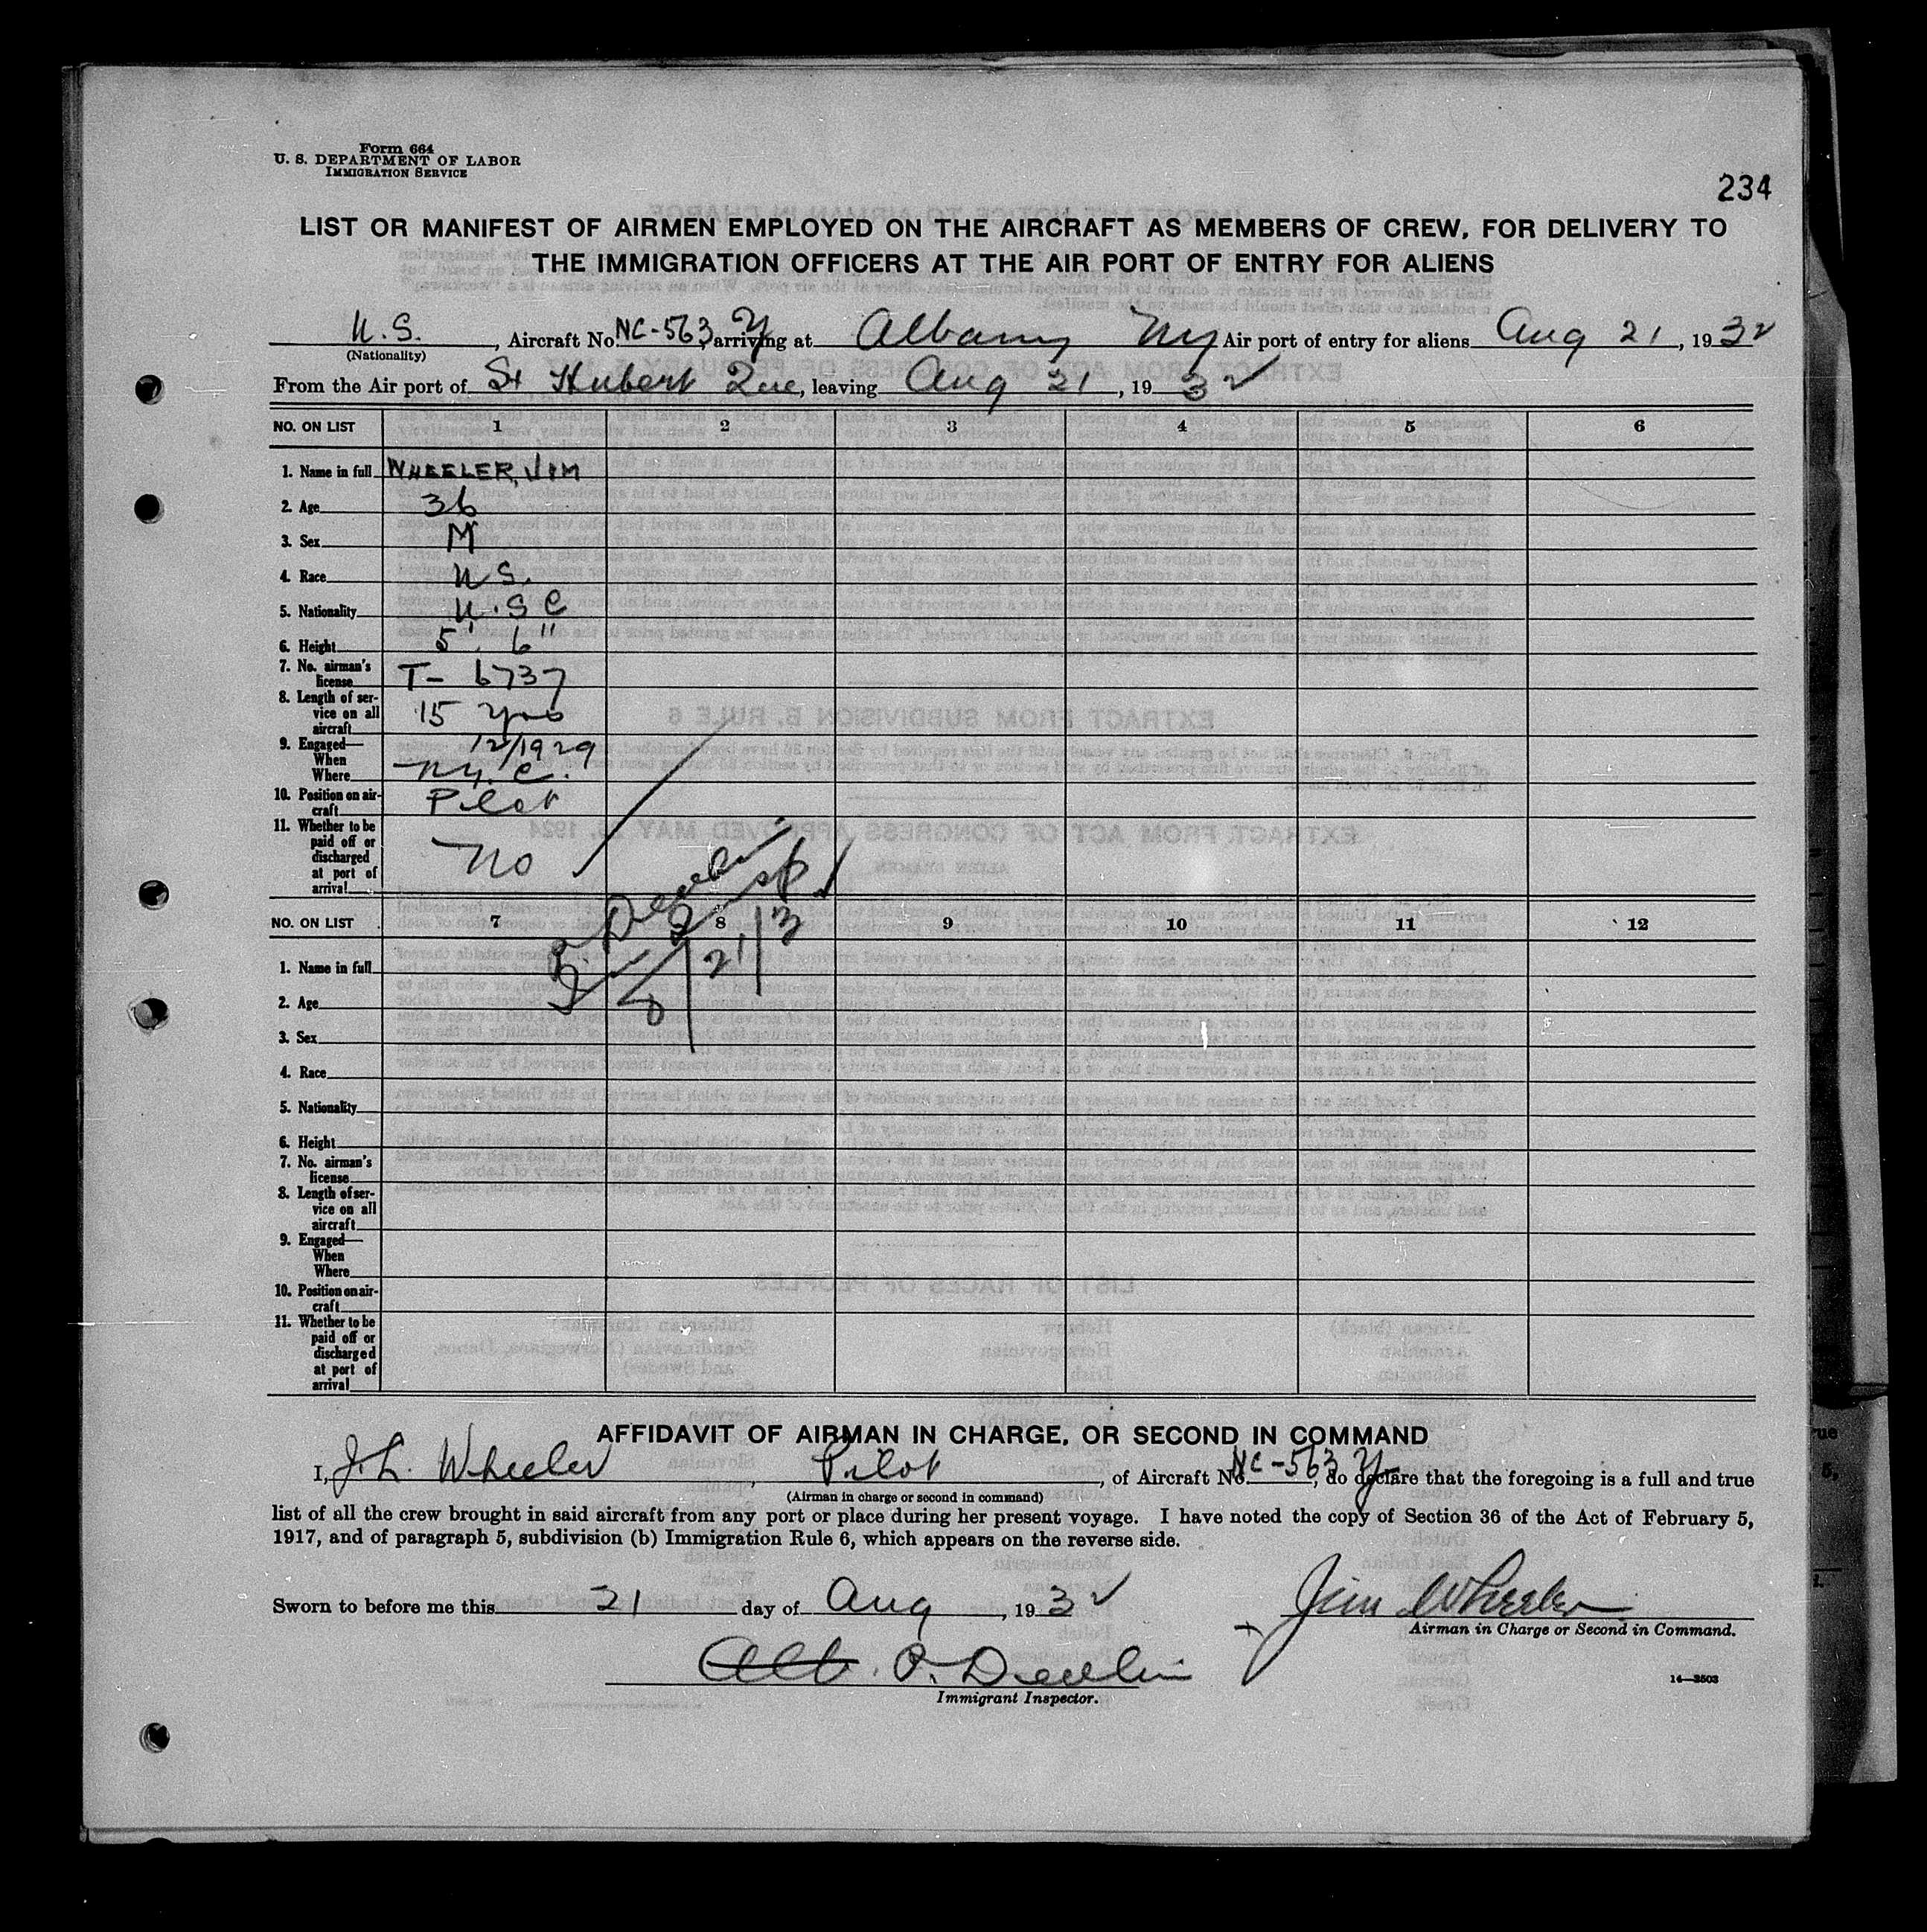 Form 664
U. S. DEPARTMENT OF LABOR
IMMIGRATION SERVICE
234
LIST OR MANIFEST OF AIRMEN EMPLOYED ON THE AIRCRAFT AS MEMBERS OF CREW, FOR DELIVERY TO
THE IMMIGRATION OFFICERS AT THE AIR PORT OF ENTRY FOR ALIENS
U.S., Aircraft No. NC-563 Y, arriving at Albany NY Air port of entry for aliens Aug 21, 1932
(Nationality)
From the Air port of St Hubert Que, leaving Aug 21, 1932
NO. ON LIST 1 2 3 4 5 6
1. Name in full WHEELER, JIM
2. Age 36
3. Sex M
4. Race U S.
5. Nationality U. S C
6. Height 5' 6"
7. No. airman's
license T- 6737
8. Length of ser-
vice on all 15 yrs
aircraft
9. Engaged— 12/1929
When
Where N.Y. C.
10. Position on air-
craft Pilot
11. Whether to be
paid off or
discharged No
at port of
arrival
NO. ON LIST 7 8 9 10 11 12
1. Name in full
2. Age
3. Sex
4. Race
5. Nationality
6. Height
7. No. airman's
license
8. Length of ser-
vice on all
aircraft
9. Engaged—
When
Where
10. Position on air-
craft
11. Whether to be
paid off or
discharged
at port of
arrival
AFFIDAVIT OF AIRMAN IN CHARGE, OR SECOND IN COMMAND
I, J. L. Wheeler, Pilot, of Aircraft No. NC-563 Y, do declare that the foregoing is a full and true
(Airman in charge or second in command)
list of all the crew brought in said aircraft from any port or place during her present voyage. I have noted the copy of Section 36 of the Act of February 5,
1917, and of paragraph 5, subdivision (b) Immigration Rule 6, which appears on the reverse side.
Sworn to before me this 21 day of Aug, 1932 Jim Wheeler
Airman in Charge or Second in Command.
P. Devlin
Immigrant Inspector.
14—3503